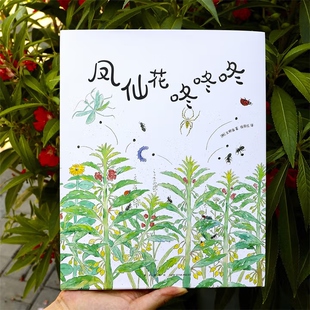 凤仙花
咚咚咚